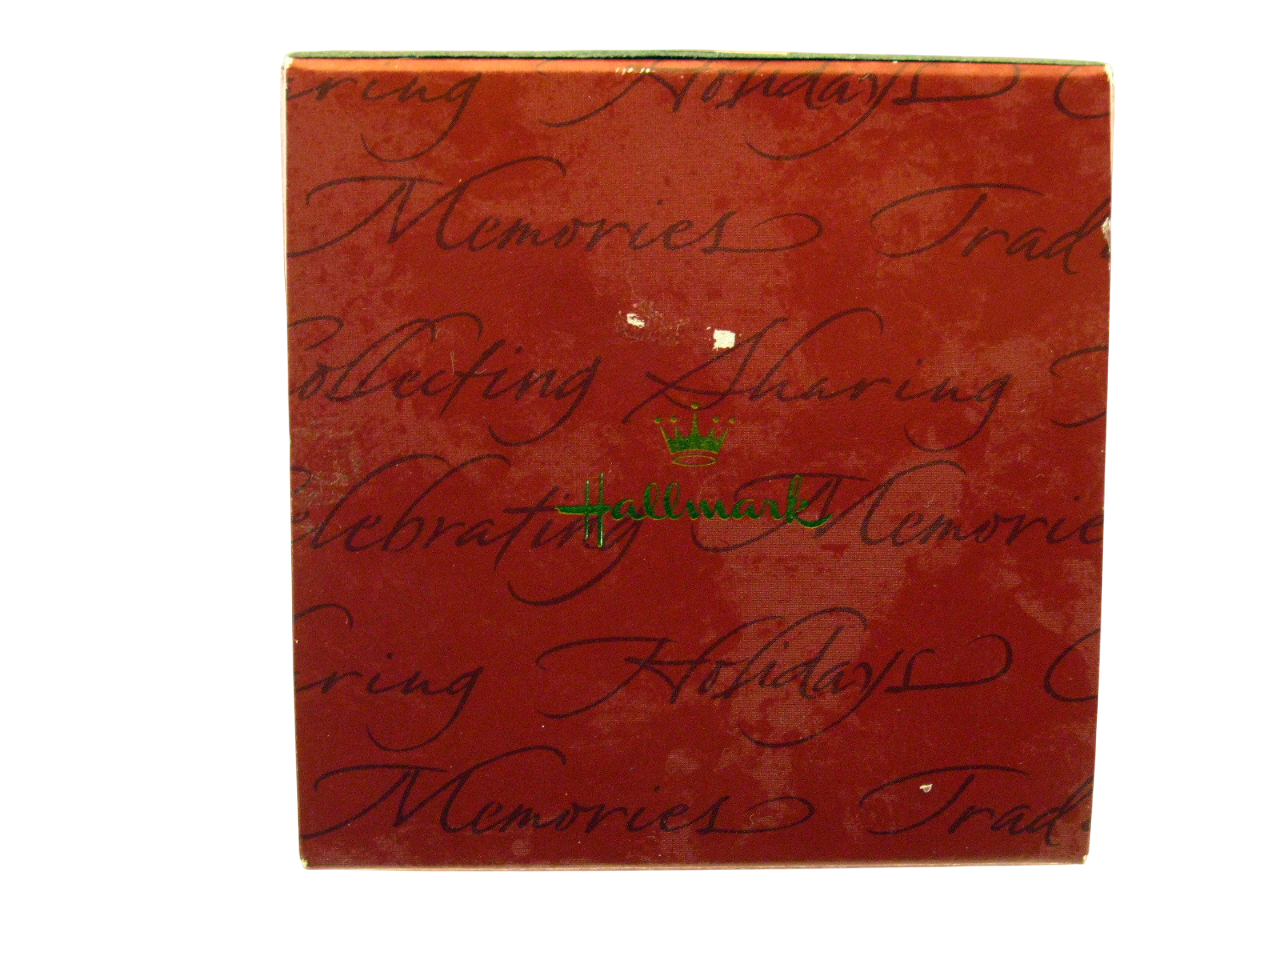 ring Holidays C
Memories Trad
Collecting Sharing
Hallmark
elebrating Memorie
ring Holidays C
Memories Trad